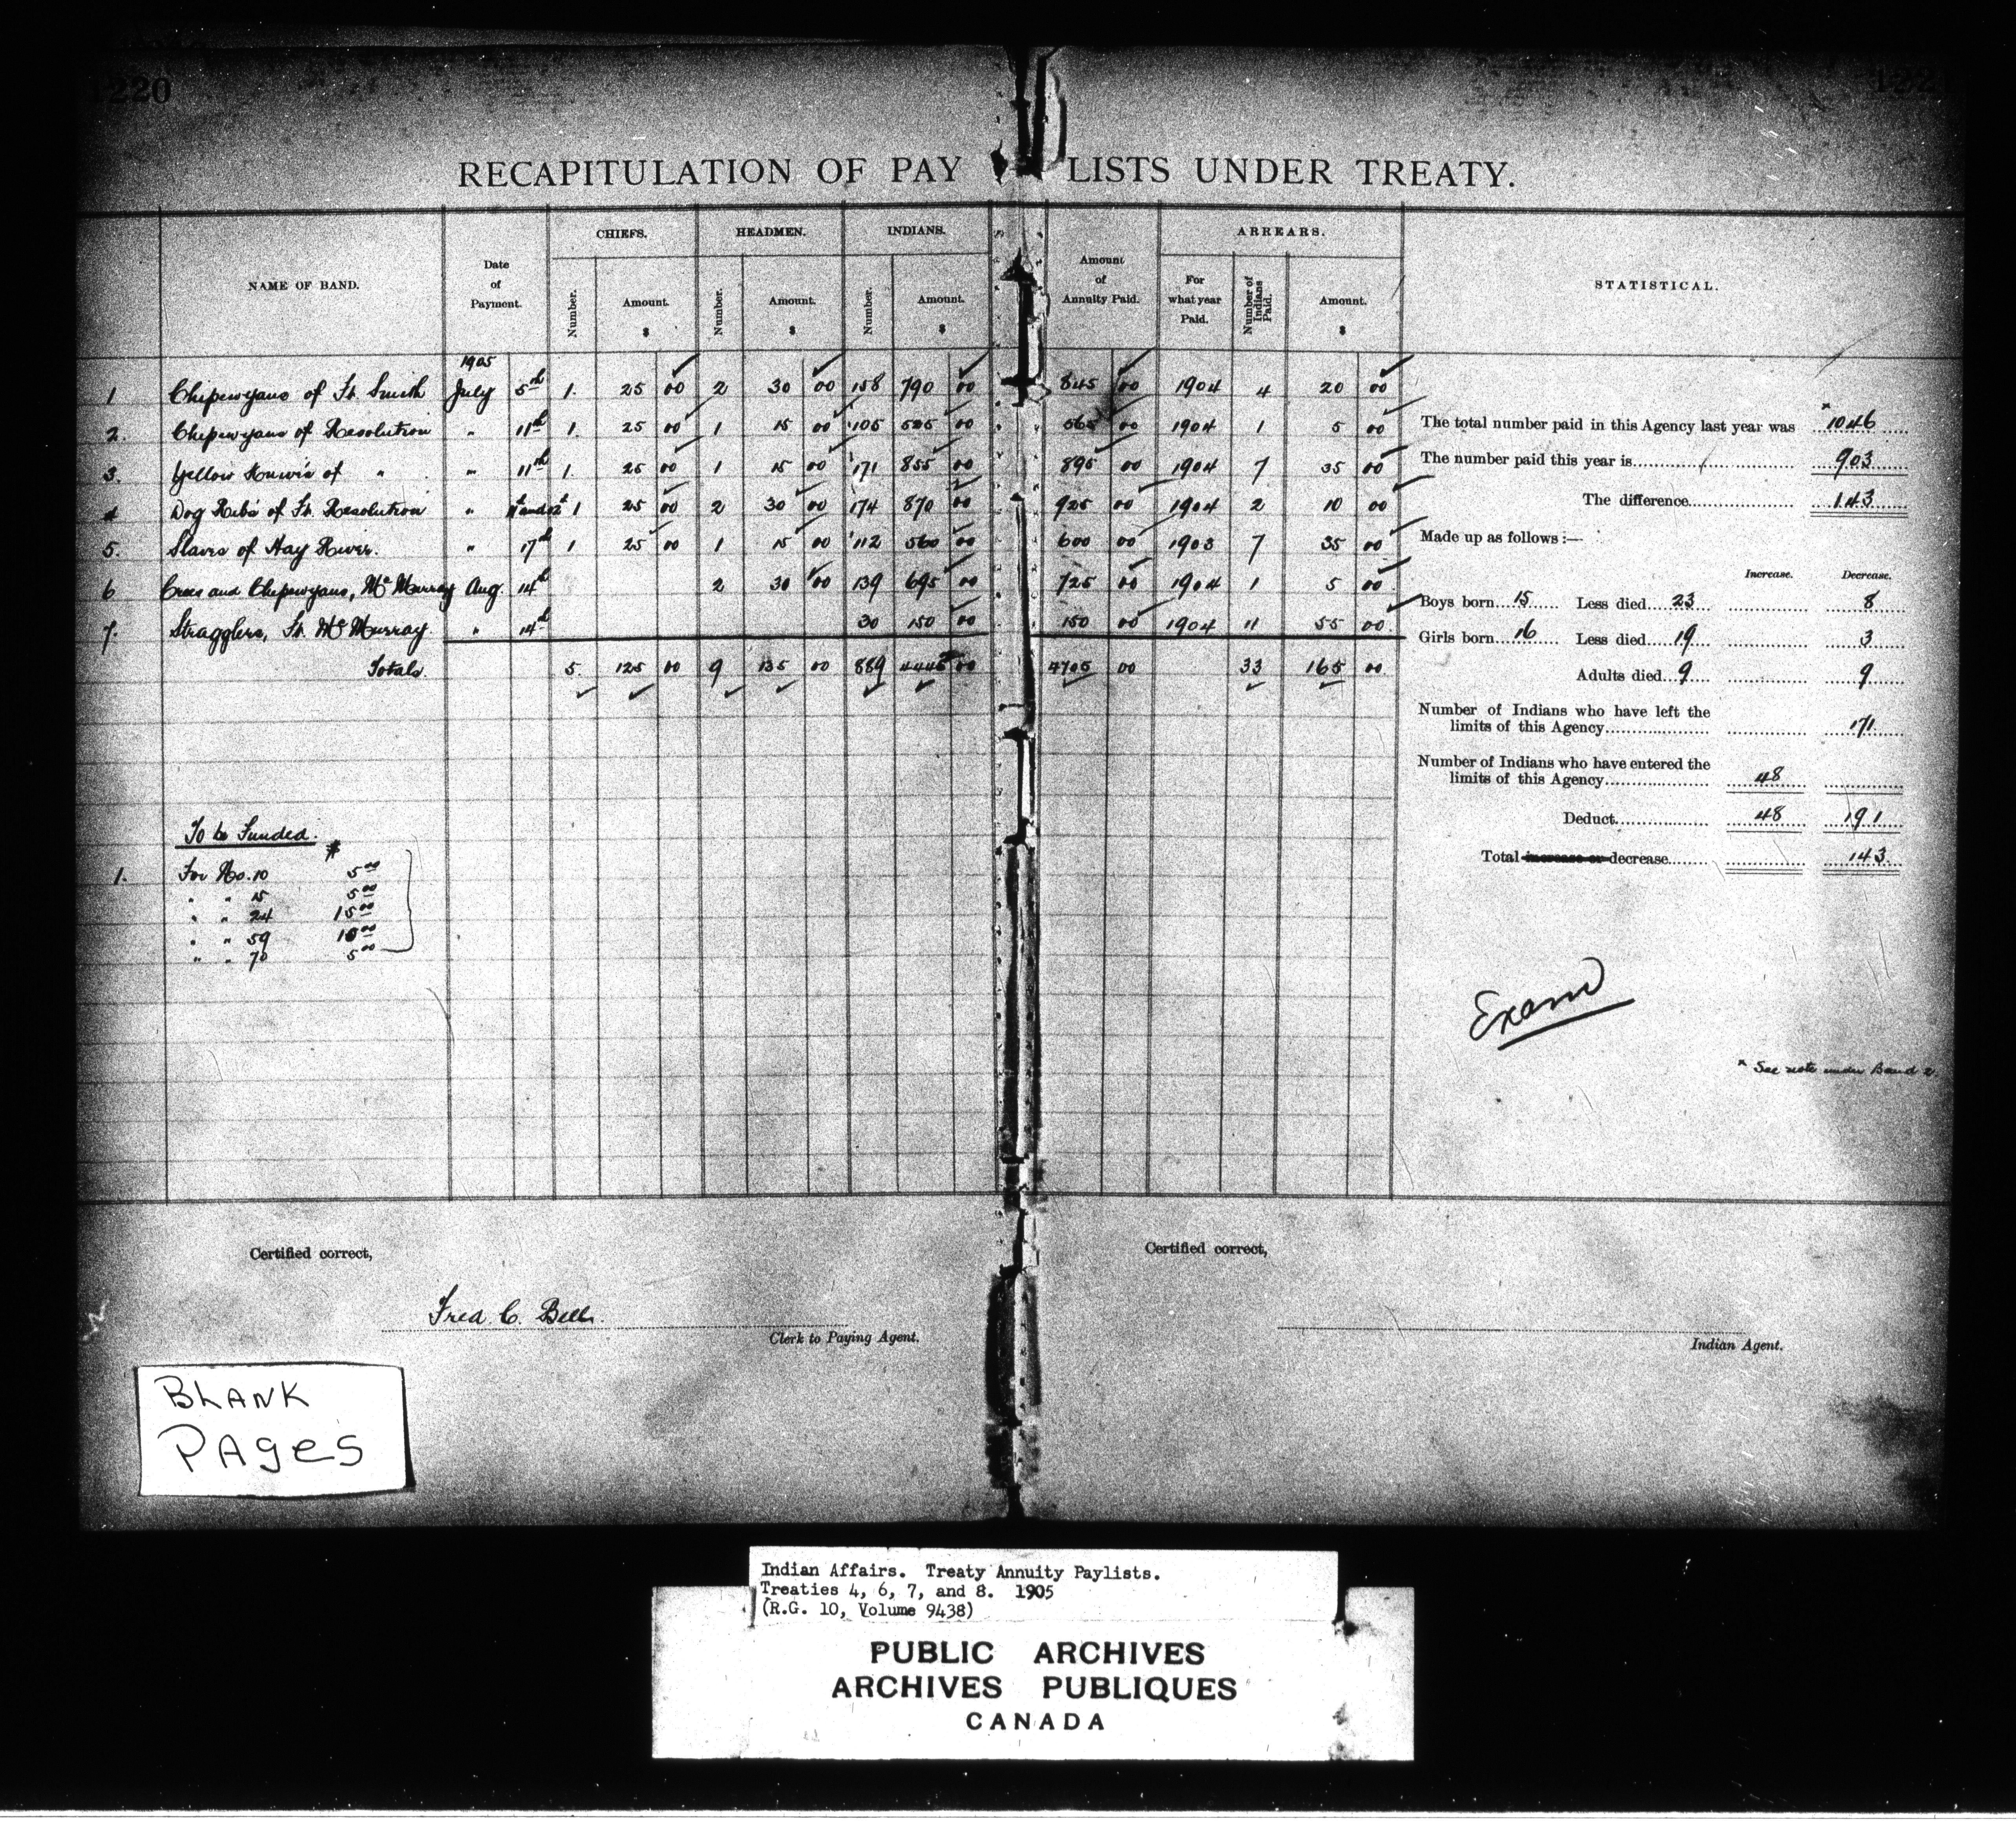 1220
RECAPITULATION OF PAY LISTS UNDER TREATY.
NAME OF BAND. Date of Payment. CHIEFS. HEADMEN. INDIANS. Amount of Annuity Paid. ARREARS. STATISTICAL.
Number. Amount. $ Number. Amount. $ Number. Amount. $ For what year Paid. Number of Indians Paid. Amount. $
1905
1 Chipewyans of Ft. Smith July 5th 1. 25 00 2 30 00 158 790 00 845 00 1904 4 20 00
2. Chipewyans of Resolution " 11th 1. 25 00 1 15 00 105 525 00 565 00 1904 1 5 00
3. Yellow Knives of " " 11th 1. 25 00 1 15 00 171 855 00 895 00 1904 7 35 00
4 Dog Ribs of Ft. Resolution " 1 25 00 2 30 00 174 870 00 925 00 1904 2 10 00
5. Slaves of Hay River. " 17th 1 25 00 1 15 00 112 560 00 600 00 1903 7 35 00
6 Crees and Chipewyans, Mc Murray Aug. 14th 2 30 00 139 695 00 725 00 1904 1 5 00
7. Stragglers, Ft. Mc Murray " 14th 30 150 00 150 00 1904 11 55 00
Totals. 5. 125 00 9 135 00 889 4445 00 4705 00 33 165 00
The total number paid in this Agency last year was x 1046
The number paid this year is 903
The difference 143
Made up as follows :—
Increase. Decrease.
Boys born 15 Less died 23 8
Girls born 16 Less died 19 3
Adults died 9 9
Number of Indians who have left the
limits of this Agency 171
Number of Indians who have entered the
limits of this Agency 48
Deduct 48 191
Total increase or decrease 143
To be Funded.
$
1. For No. 10 5 00
" " 15 5 00
" " 24 15 00
" " 59 10 00
" " 70 5 00
Exam
x See note under Band 2.
Certified correct,
Fred C. Bell.
Clerk to Paying Agent.
Certified correct,
Indian Agent.
BLANK
PAges
Indian Affairs. Treaty Annuity Paylists.
Treaties 4, 6, 7, and 8. 1905
(R.G. 10, Volume 9438)
PUBLIC ARCHIVES
ARCHIVES PUBLIQUES
CANADA